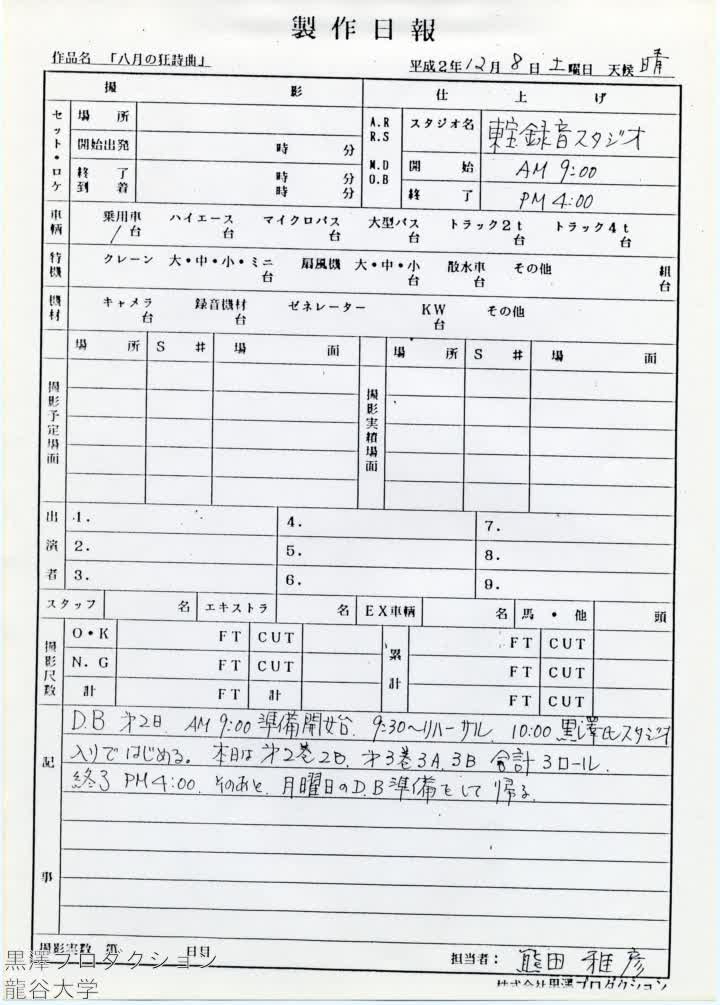 製作日報
作品名 「八月の狂詩曲」 平成2年12月8日土曜日 天候 晴
撮影 仕上げ
セット・ロケ 場所 A.R R.S M.D O.B スタジオ名 東宝録音スタジオ
開始出発 時 分 開始 AM 9:00
終了 時 分
到着 時 分 終了 PM 4:00
車輌 乗用車 ハイエース マイクロバス 大型バス トラック2t トラック4t
/台 台 台 台 台 台
特機 クレーン 大・中・小・ミニ 扇風機 大・中・小 散水車 その他 組
台 台 台 台
機材 キャメラ 録音機材 ゼネレーター KW その他
台 台 台
場所 S # 場面 場所 S # 場面
撮影予定場面 撮影実績場面
出演者 1. 4. 7.
2. 5. 8.
3. 6. 9.
スタッフ 名 エキストラ 名 EX車輌 名 馬・他 頭
撮影尺数 O・K FT CUT 累計 FT CUT
N.G FT CUT FT CUT
計 FT 計 FT CUT
記事
D.B 第2日 AM 9:00 準備開始. 9:30〜リハーサル 10:00 黒澤氏スタジオ
入りではじめる。本日は第2巻2B、第3巻3A、3B 合計3ロール.
終了 PM 4:00. そのあと、月曜日のD.B準備をして帰る.
撮影実数 第 日目
担当者: 熊田雅彦
株式会社黒澤プロダクション
黒澤プロダクション
龍谷大学